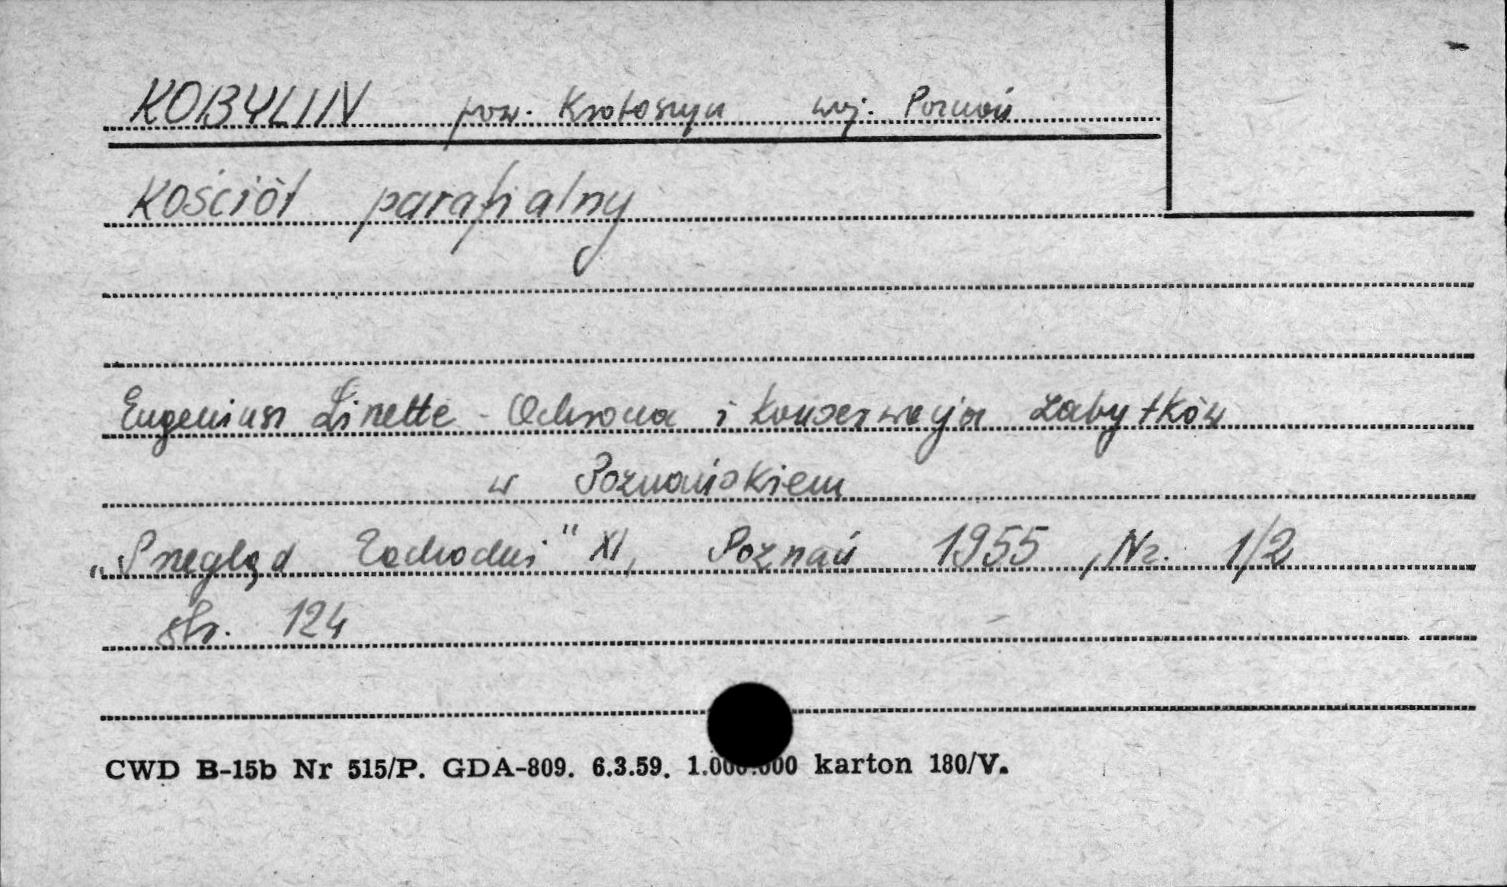 KOBYLIN pow. Krotoszyn woj. Poznań
Kościół parafialny
Eugeniusz Linette - Ochrona i konserwacja zabytków
w Poznańskiem
„Przegląd Zachodni" XI, Poznań 1955, Nr. 1/2
str. 124
CWD B-15b Nr 515/P. GDA-809. 6.3.59. 1.000.000 karton 180/V.